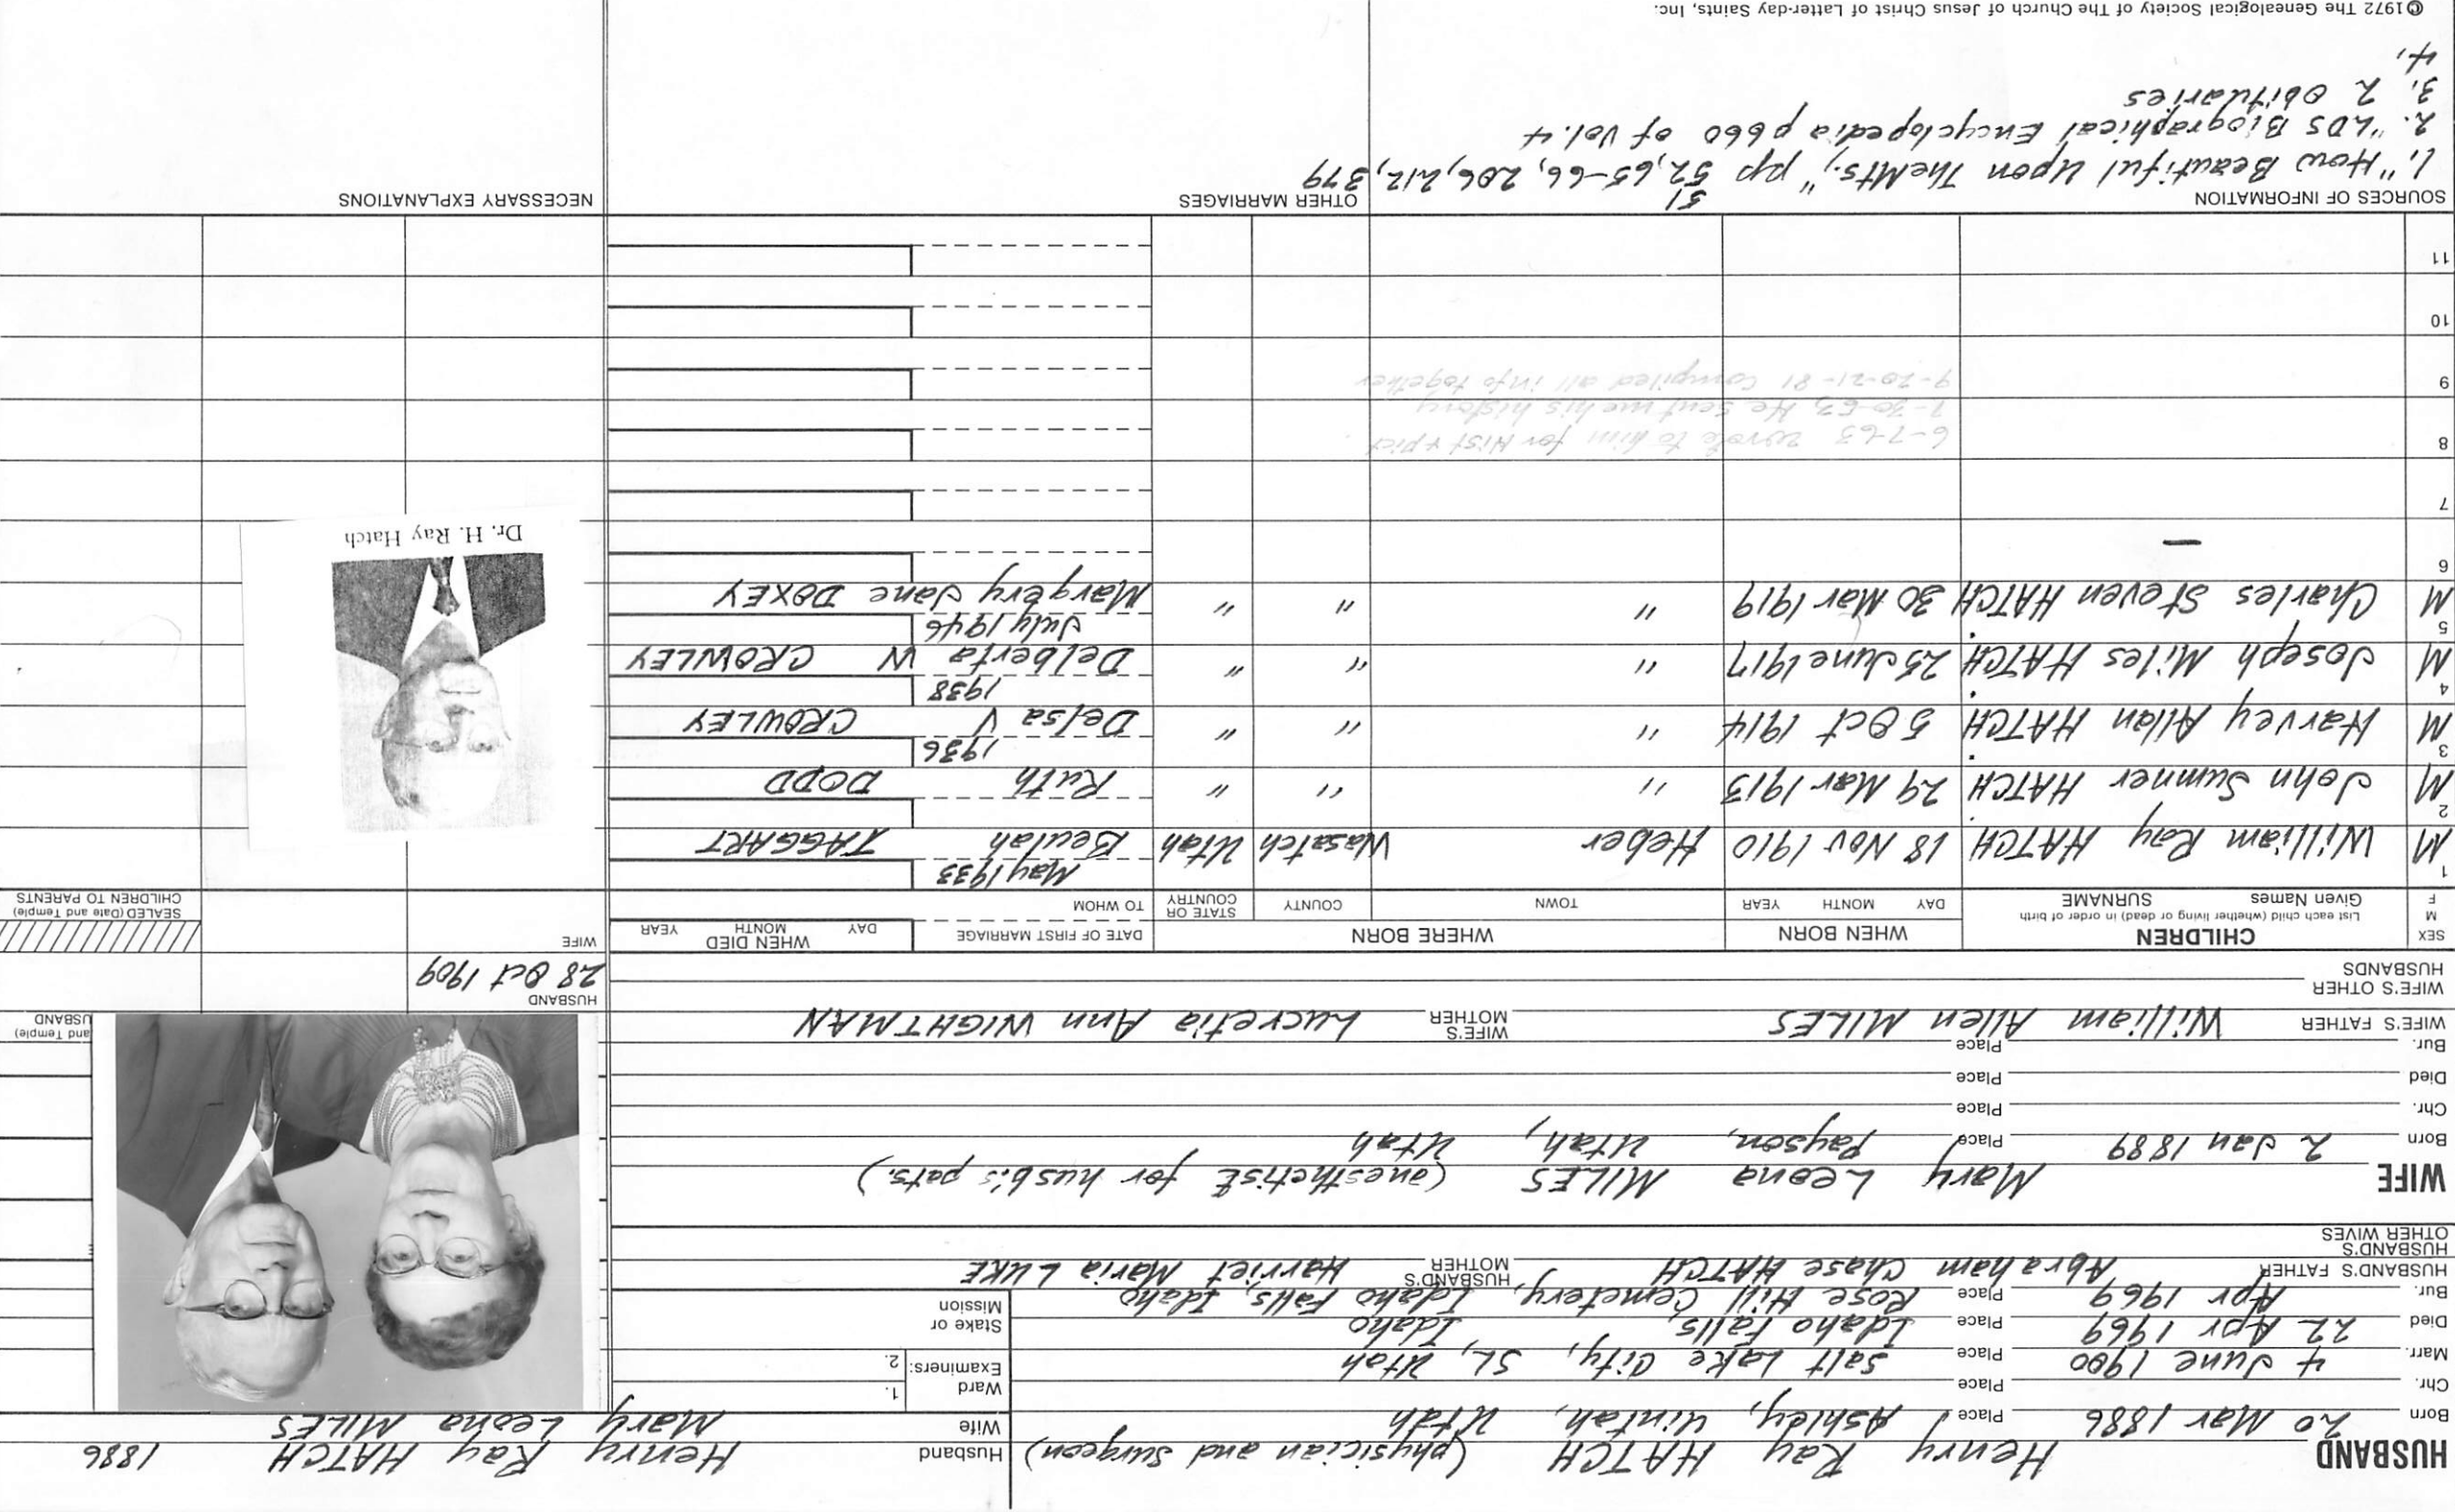 HUSBAND Henry Ray HATCH (physician and surgeon)
Born 20 Mar 1886 Place Ashley, Uintah, Utah
Chr. Place
Marr. 4 June 1900 Place Salt Lake City, SL, Utah
Died 22 Apr 1969 Place Idaho Falls, Idaho
Bur. Apr 1969 Place Rose Hill Cemetery, Idaho Falls, Idaho
HUSBAND'S FATHER Abraham Chase HATCH HUSBAND'S MOTHER Harriet Maria LUKE
HUSBAND'S OTHER WIVES
Husband Henry Ray HATCH 1886
Wife Mary Leona MILES
Ward 1.
Examiners: 2.
Stake or Mission
WIFE Mary Leona MILES (anesthetist for husb's pats.)
Born 2 Jan 1889 Place Payson, Utah, Utah
Chr. Place
Died Place
Bur. Place
WIFE'S FATHER William Allen MILES WIFE'S MOTHER Lucretia Ann WIGHTMAN
WIFE'S OTHER HUSBANDS
and Temple)
USBAND
HUSBAND
28 Oct 1909
WIFE
SEALED (Date and Temple)
CHILDREN TO PARENTS
SEX M F
CHILDREN
List each child (whether living or dead) in order of birth
Given Names SURNAME
WHEN BORN
DAY MONTH YEAR
WHERE BORN
TOWN COUNTY STATE OR COUNTRY
DATE OF FIRST MARRIAGE
TO WHOM
WHEN DIED
DAY MONTH YEAR
1 May 1933
M William Ray HATCH 18 Nov 1910 Heber Wasatch Utah Beulah TAGGART
2
M John Sumner HATCH 29 Mar 1913 " " " Ruth DODD
3 1936
M Harvey Allan HATCH 5 Oct 1914 " " " Delsa V CROWLEY
4 1938
M Joseph Miles HATCH 25 June 1917 " " " Delberta W CROWLEY
5 July 1946
M Charles Steven HATCH 30 Mar 1919 " " " Margery Jane DOXEY
6 —
7
8 6-7-63 wrote to him for Hist + pict
7-30-63 He sent me his history
9 9-20-21-81 compiled all info together
10
11
Dr. H. Ray Hatch
SOURCES OF INFORMATION
1. "How Beautiful Upon The Mts.," pp 51 52, 65-66, 206, 212, 379
2. "LDS Biographical Encyclopedia p 660 of Vol. 4
3. 2 obituaries
4.
OTHER MARRIAGES
NECESSARY EXPLANATIONS
©1972 The Genealogical Society of The Church of Jesus Christ of Latter-day Saints, Inc.